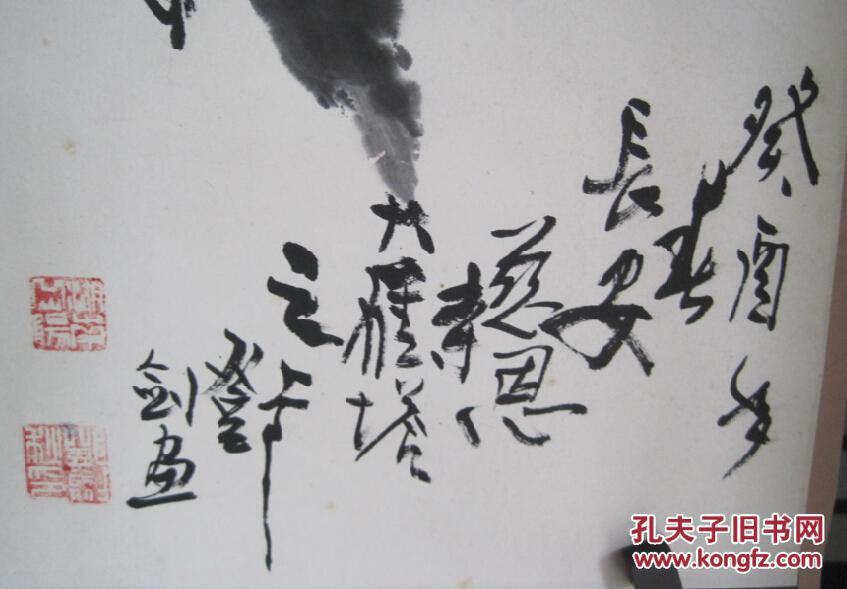 癸酉年
春
長安
慈恩
寺
大雁塔
之
剑画
孔夫子旧书网
www.kongfz.com